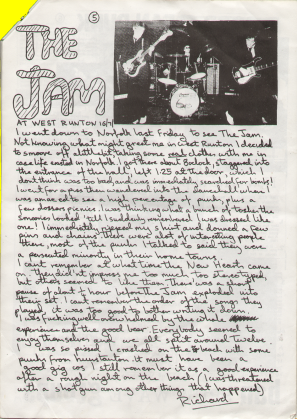 5
THE
JAM
AT WEST RUNTON 16/7
I went down to Norfolk last Friday to see The Jam.
Not knowing what might greet me in West Runton I decided
to smarm off little bit taking some real clothes with me in
case life ended in Norfolk. I got there about 8 o'clock, staggered into
the entrance of the hall, left 1.25 at the door, which I
dont think was too bad, and was immediately searched for bombs!
I went for a piss then wandered into the dance hall and
was amazed to see a high percentage of punks, plus a
few posers. I was thinking what a bunch of tossers the
looked till I suddenly remembered I was dressed like
one! I immediately ripped my shirt and donned a few
pins and chains. There were a lot of interesting people
there, most of the punks I talked to said they were
a persecuted minority in their home towns.
I cant remember at what time the New Hearts came
on, they did'nt impress me too much - too stereotyped,
but others seemed to like them. There was a short
pause of about ½ hour before The Jam exploded into
their set. I cant remember the order of the songs they
played, it was too good to bother writing it down.
I was fucking well overwhelmed by the whole
experience and the good beer. Everybody seemed to
enjoy themselves and we all split around twelve
I was so pissed I crashed on the beach with some
punks from Hunstanton it must have been a
good gig cos I still remember it as a good experience
after a rough night on the beach (I was threatened
with a shotgun among other things that happened)
Richard